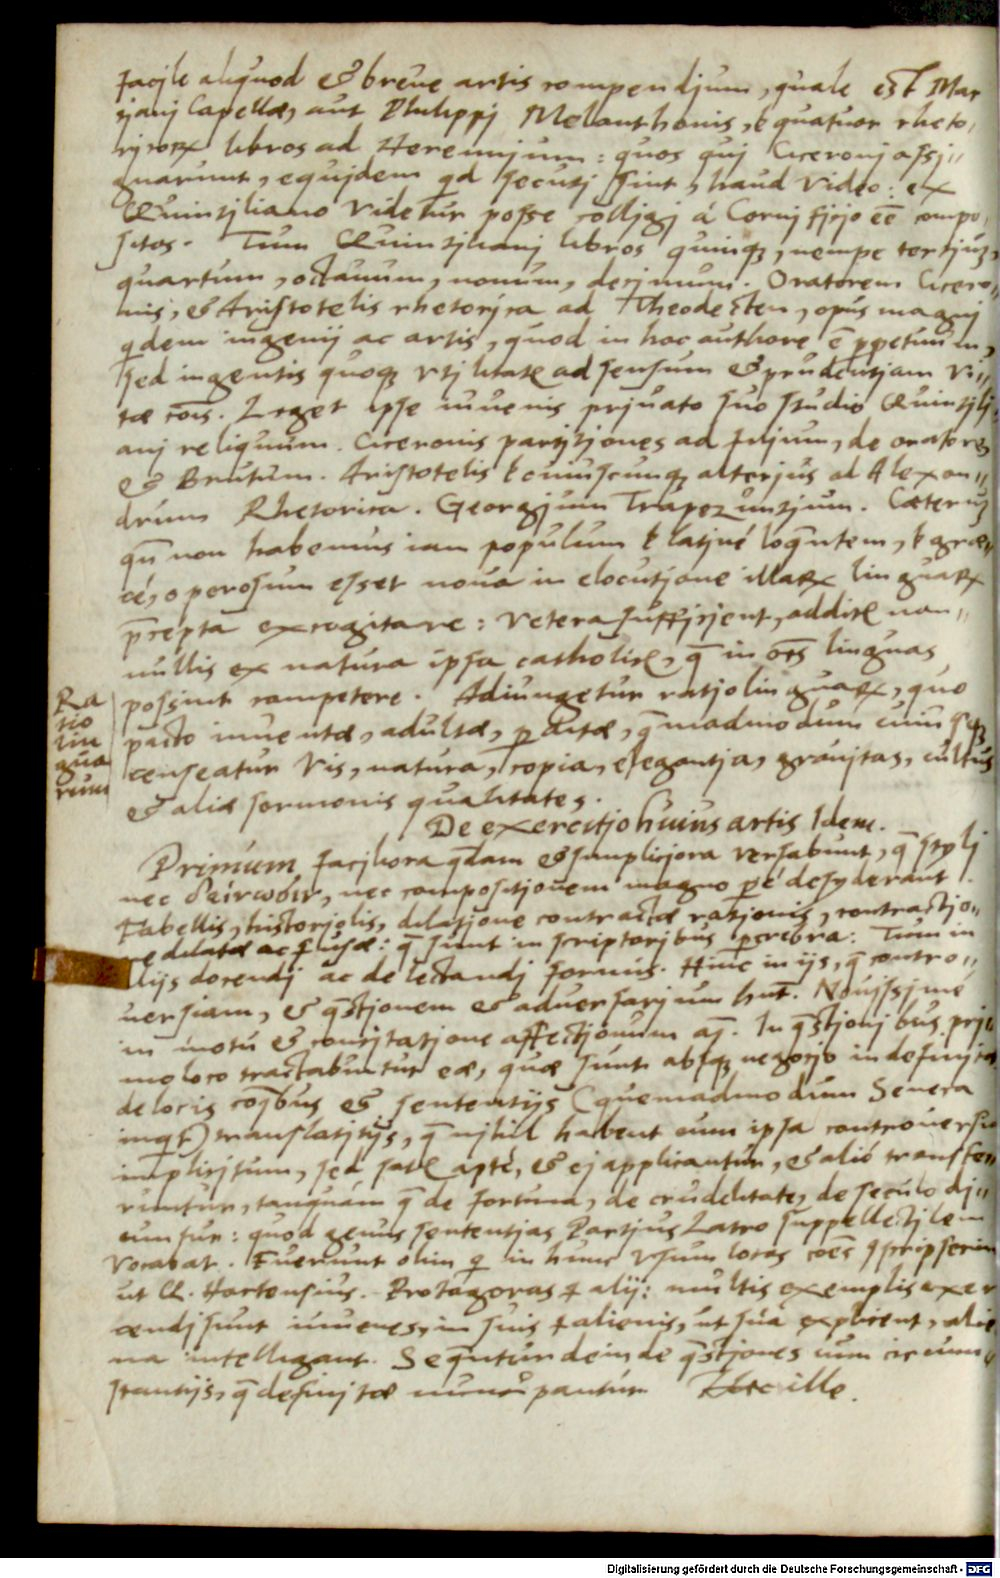 facile aliquod & breve artis compendium, quale est Mar
tiani Capellae, aut Philippi Melanthonis, & quatuor rheto,
ricorꝝ libros ad Herennium: quos qui Ciceroni assi-
gnarunt, equidem qd secuti sint, haud video: ex
Quintiliano videtur posse colligi á Cornificio eē compo-
sitos. Tum Quintiliani libros quinqꝫ, nempe tertiuꝫ,
quartum, octauum, nonum, decimum. Oratorem Cicero-
nis, & Aristotelis rhetorica ad Theodecten, opus magni
qdem ingenij ac artis, quod in hoc authore ē ppetuum,
sed ingentis quoqꝫ vtilitatꝭ ad sensum & prudentiam vi-
tae cōis. Leget ipse iuuenis priuato suo studio Quintili
ani reliquum. Ciceronis partitiones ad filium, de oratore,
& Brutum. Aristotelis ł cuiuscunqꝫ alterius ad Alexan-
drum Rhetorica. Georgium Trapezuntium. Caeteruꝫ
qn non habemus iam populum ł latiné loqntem, ł grae-
cé, operosum esset noua in elocutione illaꝝ linguaꝝ
p̄cepta excogitare: vetera sufficient, additꝭ non-
nullis ex natura ipsa catholicꝭ, q̄ in oēs linguas
possint competere. Adiungetur ratio linguaꝝ, quo
pacto inuentae, adultae, pditae, q̄madmodum cuiusqꝫ
censeatur vis, natura, copia, elegantia, grauitas, cultus
& aliae sermonis qualitates.
Ra
tio
lin
gua
rum
De exercitio huius artis Idem.
Primum faciliora qdam & simpliciora versabunt, q̄ styli
nec δείνωσιν, nec compositionem magno pé desyderant.
Fabellis, historiolis, dilatione contractae rationis, contractio-
ne dilatae ac fusae: q̄ sunt in scriptoribus pcrebra: Tum in
alijs docendi ac delectandi formis. Hinc in ijs, q̄ contro-
uersiam, & q̄stionem & aduersarium hnt. Nouissime
in motu & concitatione affectionum aī. In q̄stionibus pri
mo loco tractabuntur eae, quae sunt absqꝫ negocio indefinitae
de locis cōibus & sententijs (quemadmodum Seneca
inqt) translatitijs, q̄ nihil habent cum ipsa controuersia
implicitum, sed satꝭ apté, & ei applicantur, & alió transfe-
runtur, tanquám q̄ de fortuna, de crudelitate, de seculo di-
cuntur: quod genus sententias Portius Latro suppellectilem
vocabat. Fuerunt olim q in hunc vsum locos cōes
ut Q. Hortensius. Protagoras & alij: multis exemplis exer
cendi sunt iuuenes, in suis & alienis, ut sua explicent, alie
na intelligant. Seqntur deinde q̄stiones cum circum-
stantijs, q̄ definitae nuncupantur Hec ille.
Digitalisierung gefördert durch die Deutsche Forschungsgemeinschaft - DFG